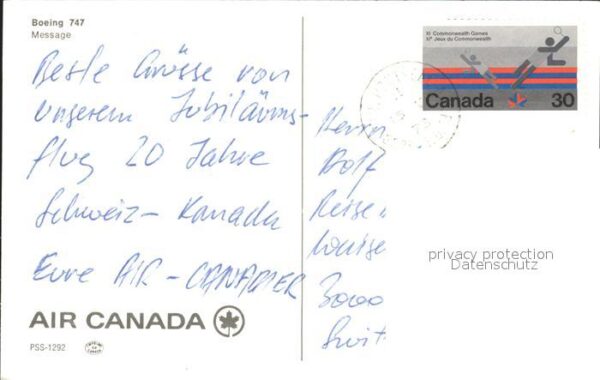 Boeing 747
Message
Beste Grüsse von
unserem Jubiläums-
flug 20 Jahre
Schweiz - Kanada
Eure AIR-CANADIER
AIR CANADA
PSS-1292
XI Commonwealth Games
XIes Jeux du Commonwealth
Canada 30
Herrn
Reise
Louise
3000
privacy protection
Datenschutz